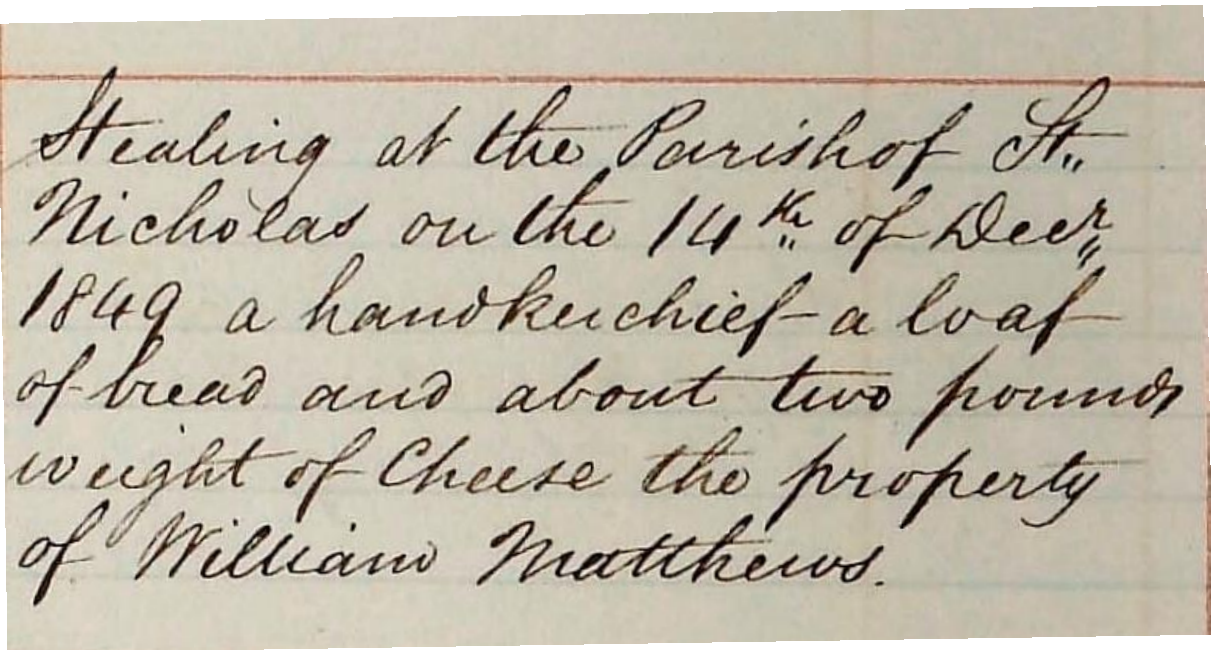 Stealing at the Parish of St.
Nicholas on the 14th of Decr
1849 a handkerchief a loaf
of bread and about two pounds
weight of Cheese the property
of William Matthews.